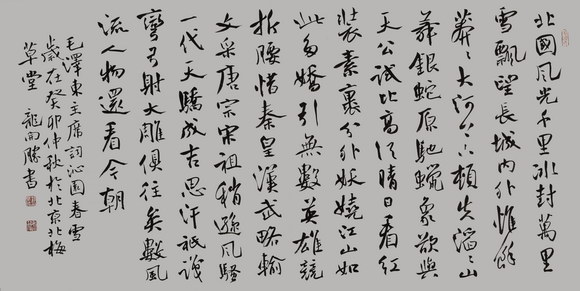 北國風光千里冰封萬里
雪飄望長城内外惟餘
莽〻大河上下頓失滔〻山
舞銀蛇原馳蠟象欲與
天公試比高須晴日看紅
裝素裹分外妖嬈江山如
此多嬌引無數英雄競
折腰惜秦皇漢武略輸
文采唐宗宋祖稍遜風騷
一代天驕成吉思汗祇識
彎弓射大雕俱往矣數風
流人物還看今朝
毛澤東主席詞沁園春雪
歲在癸卯仲秋於北京北梅
草堂 龍開勝書